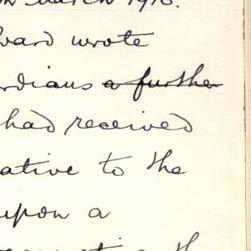 March 1916.
wrote
a further
had received
ative to the
upon a